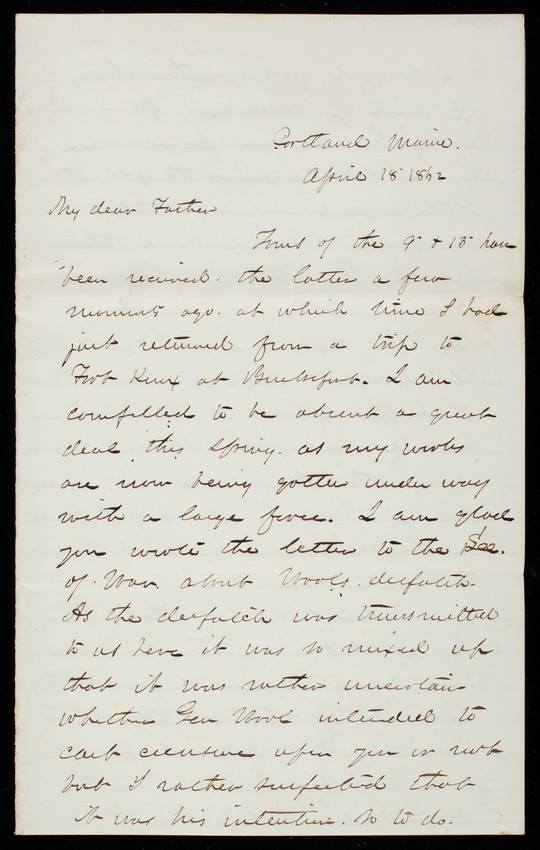 Portland Maine.
April 18 1862
My dear Father
Yours of the 9 & 15 have
been received. the latter a few
moments ago. at which time I had
just returned from a trip to
Fort Knox at Bucksport. I am
compelled to be absent a great
deal this Spring. as my works
are now being gotten under way
with a large force. I am glad
you wrote the letter to the Sec.
of War. about Wool's despatch.
As the despatch was transmitted
to us here it was so mixed up
that it was rather uncertain
whether Gen Wool intended to
cast censure upon you or not
but I rather suspected that
it was his intention. so to do.